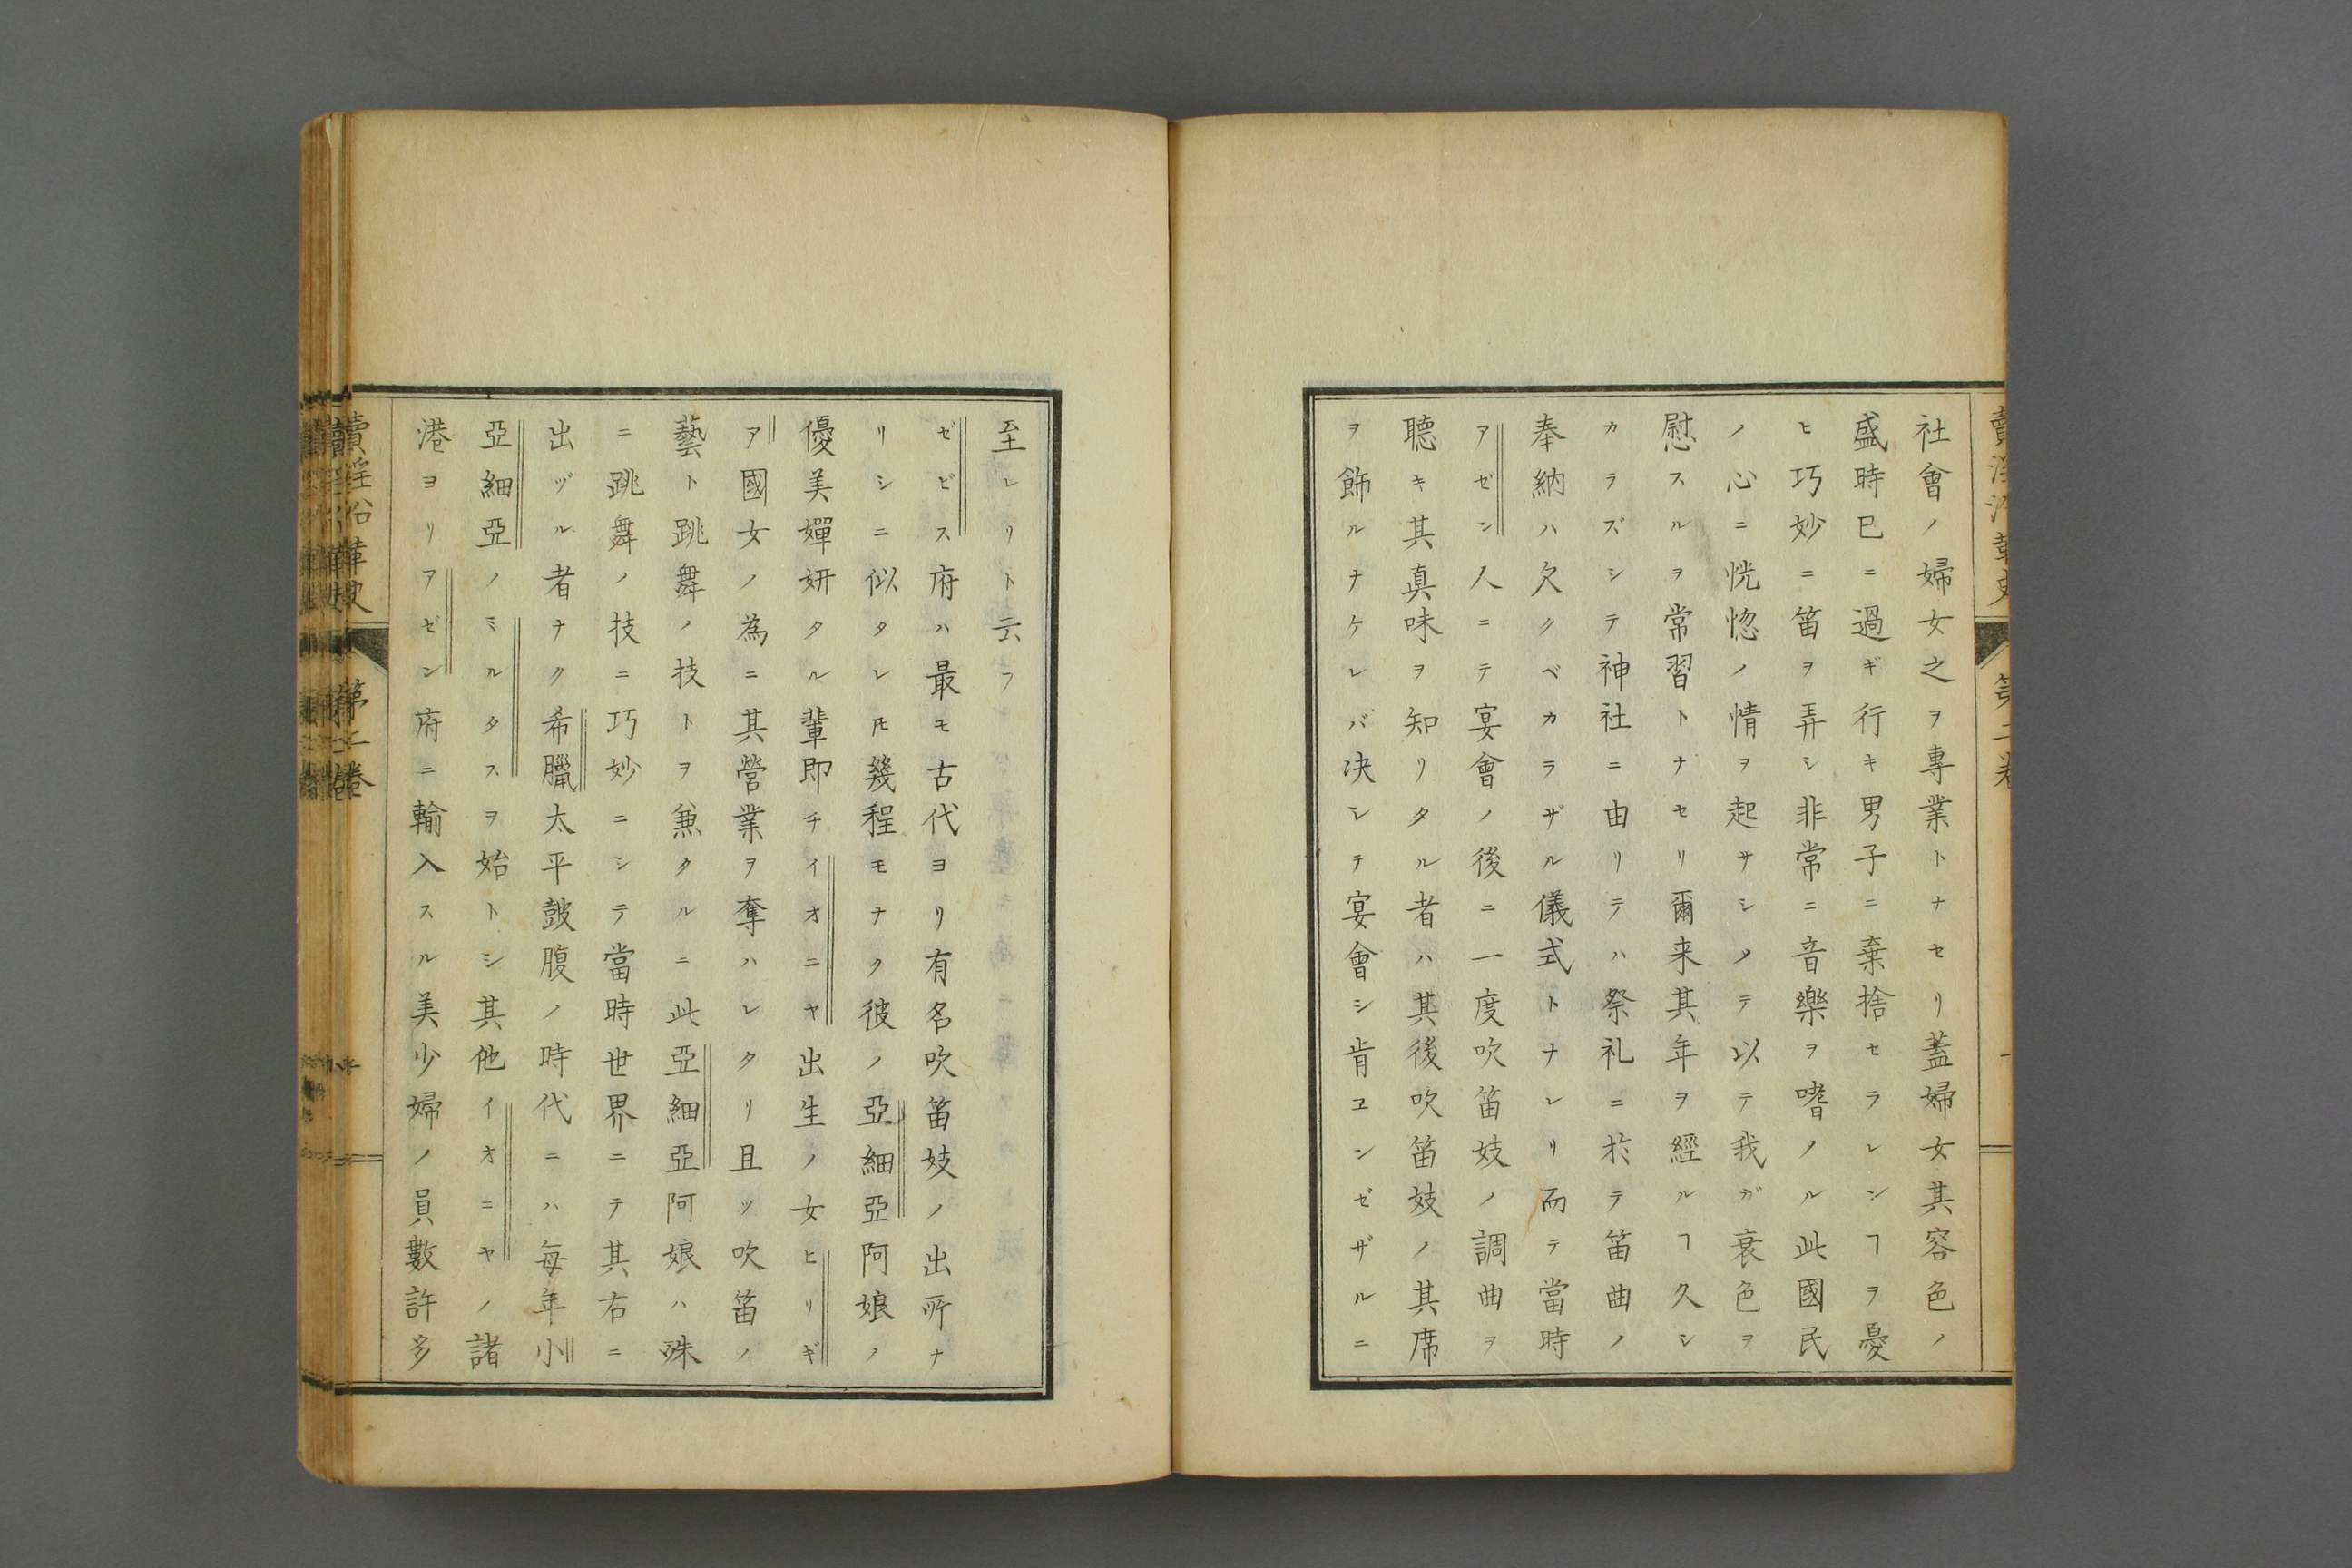 社會ノ婦女之ヲ專業トナセリ蓋婦女其容色ノ
盛時已ニ過ギ行キ男子ニ棄捨セラレンヿヲ憂
ヒ巧妙ニ笛ヲ弄シ非常ニ音樂ヲ嗜ノル此國民
ノ心ニ恍惚ノ情ヲ起サシメテ以テ我ガ衰色ヲ
慰スルヲ常習トナセリ爾来其年ヲ經ルヿ久シ
カラズシテ神社ニ由リテハ祭礼ニ於テ笛曲ノ
奉納ハ欠クベカラザル儀式トナレリ而テ當時
アゼン人ニテ宴會ノ後ニ一度吹笛妓ノ調曲ヲ
聴キ其真味ヲ知リタル者ハ其後吹笛妓ノ其席
ヲ飾ルナケレバ决シテ宴會シ肯ヱンゼザルニ
至レリト云フ
ゼビス府ハ最モ古代ヨリ有名吹笛妓ノ出所ナ
リシニ似タレ𪜈幾程モナク彼ノ亞細亞阿娘ノ
優美嬋妍タル輩即チイオニヤ出生ノ女ヒリギ
ア國女ノ為ニ其營業ヲ奪ハレタリ且ツ吹笛ノ
藝ト跳舞ノ技トヲ兼タルニ此亞細亞阿娘ハ殊
ニ跳舞ノ技ニ巧妙ニシテ當時世界ニテ其右ニ
出ヅル者ナク希臘太平皷腹ノ時代ニハ毎年小
亞細亞ノミルタスヲ始トシ其他イオニヤノ諸
港ヨリアゼン府ニ輸入スル美少婦ノ員數許多
賣淫沿革史 第二卷